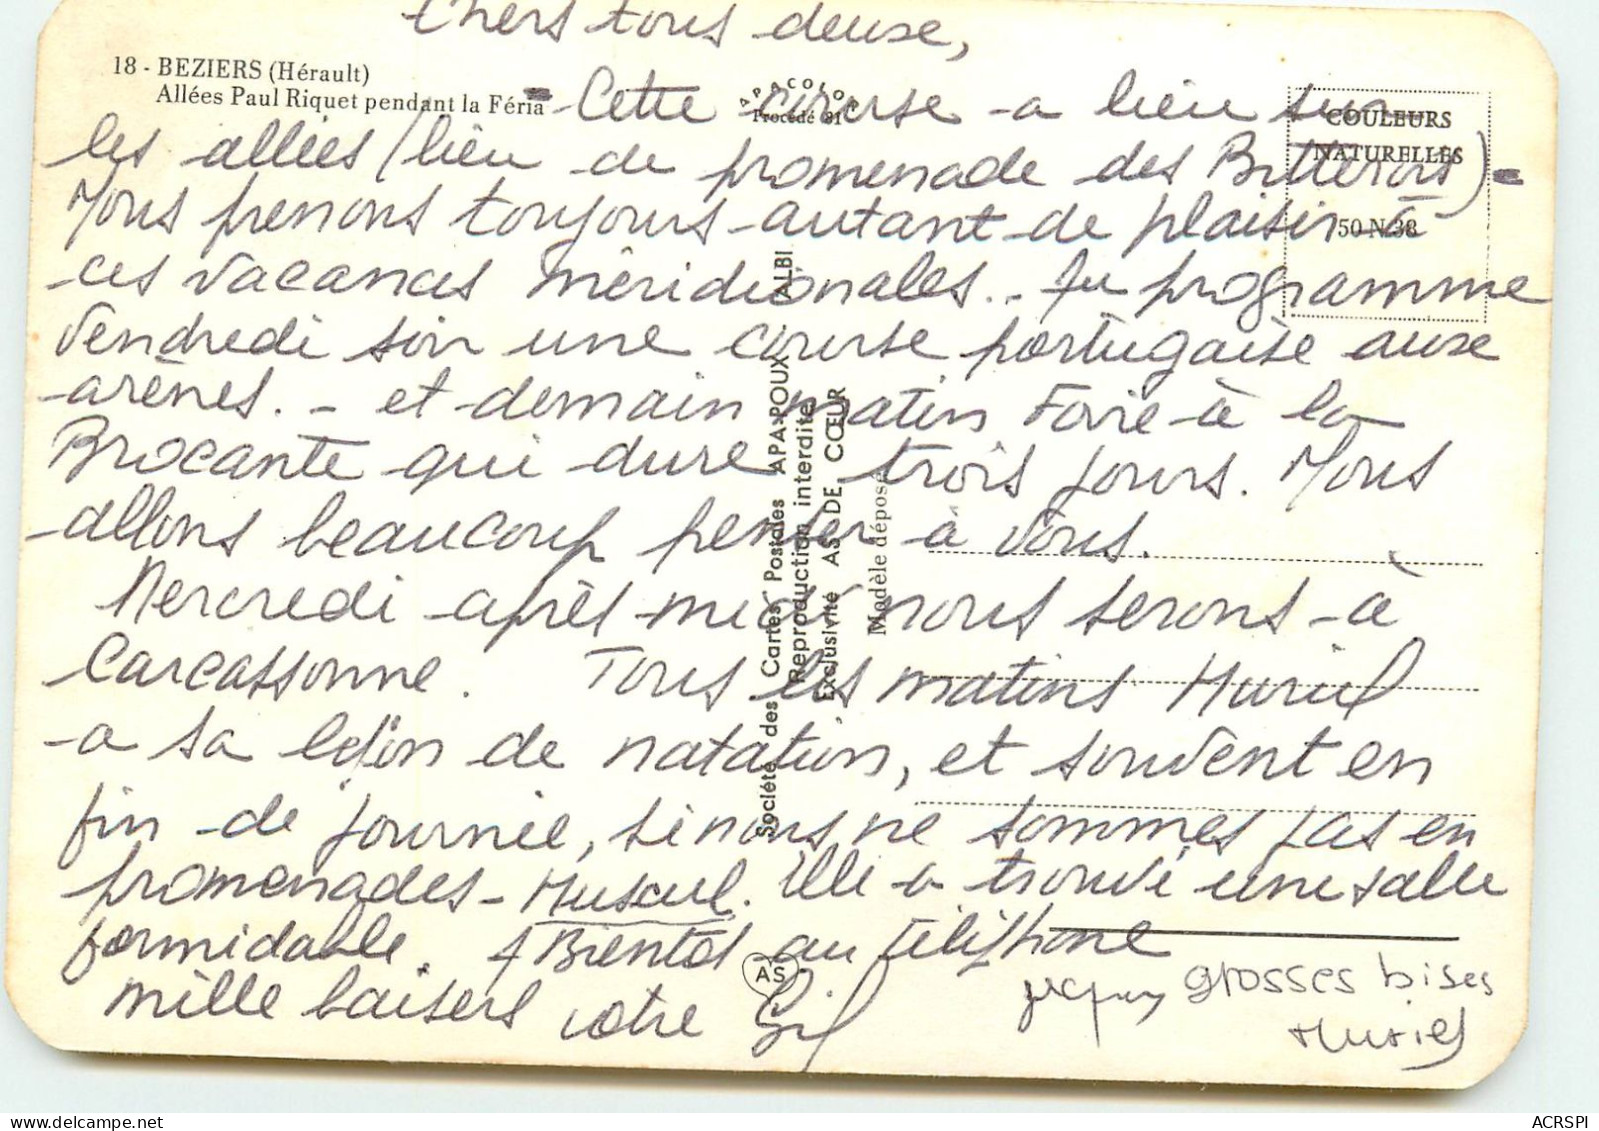 Chers tous deux,
18 - BEZIERS (Hérault)
Allées Paul Riquet pendant la Féria
APACOLOR
Procédé 81
COULEURS
NATURELLES
50 N 38
- Cette course a lieu sur
les allées (lieu de promenade des Bitterois) -
Nous prenons toujours autant de plaisir à
ces vacances méridionales.. Au programme
Vendredi soir une course portugaise aux
arènes. - et demain matin Foire à la
Brocante qui dure trois jours. Nous
allons beaucoup penser à vous.
Mercredi après-midi nous serons à
Carcassonne. Tous les matins Muriel
a sa leçon de natation, et souvent en
fin de journée, si nous ne sommes pas en
promenades - Muscul. Elle a trouvé une salle
formidable. A Bientôt au téléphone
mille baisers votre
grosses bises
Muriel
Société des Cartes Postales APA-POUX ALBI
Reproduction interdite
Exclusivité AS DE CŒUR
Modèle déposé
AS
ACRSPI